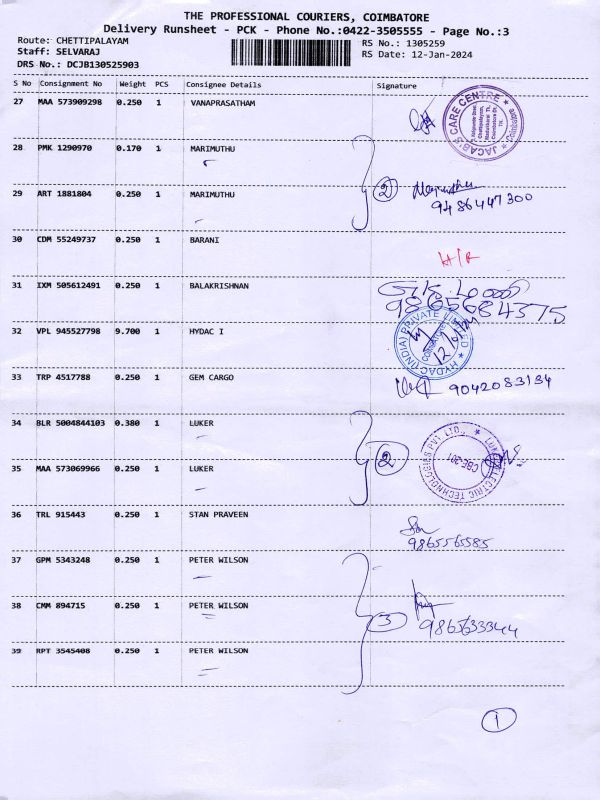 THE PROFESSIONAL COURIERS, COIMBATORE
Delivery Runsheet - PCK - Phone No.:0422-3505555 - Page No.:3
Route: CHETTIPALAYAM RS No.: 1305259
Staff: SELVARAJ RS Date: 12-Jan-2024
DRS No.: DCJB130525903
S No Consignment No Weight PCS Consignee Details Signature
27 MAA 573909298 0.250 1 VANAPRASATHAM
JACAB'S CARE CENTRE
Coimbatore
28 PMK 1290970 0.170 1 MARIMUTHU
2
29 ART 1881804 0.250 1 MARIMUTHU
9486447300
30 CDM 55249737 0.250 1 BARANI
H/R
31 IXM 505612491 0.250 1 BALAKRISHNAN
9865684375
32 VPL 945527798 9.700 1 HYDAC I
HYDAC (INDIA) PRIVATE LIMITED
COIMBATORE
33 TRP 4517788 0.250 1 GEM CARGO
9042083134
34 BLR 5004844103 0.380 1 LUKER
2
LUKER ELECTRIC TECHNOLOGIES PVT LTD.,
CBE-201
35 MAA 573069966 0.250 1 LUKER
36 TRL 915443 0.250 1 STAN PRAVEEN
9865565585
37 GPM 5343248 0.250 1 PETER WILSON
38 CMM 894715 0.250 1 PETER WILSON
3
9865633344
39 RPT 3545408 0.250 1 PETER WILSON
1